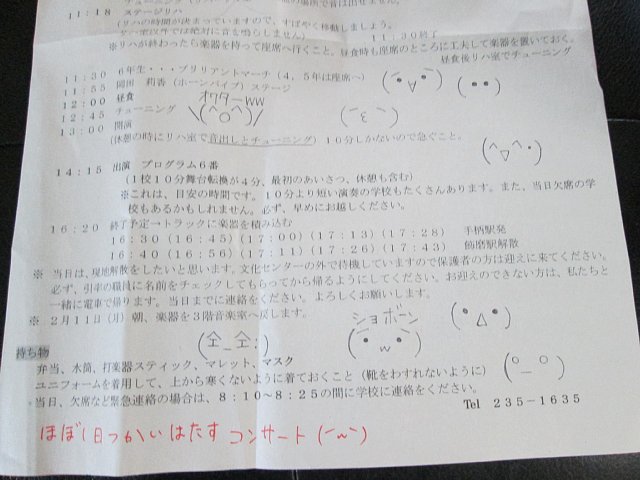 11:18 ステージリハ
(リハの時間が決まっていますので、すばやく移動しましょう。
リハ室以外では絶対に音を鳴らしません) 11:30終了
※リハが終わったら楽器を持って座席へ行くこと。昼食時も座席のところに工夫して楽器を置いておく。
昼食後リハ室でチューニング
11:30 6年生・・・ブリリアントマーチ(4、5年は座席へ)
11:55 岡田 莉香(ホーンパイプ)ステージ
12:00 昼食
オワタ―ww
12:45 チューニング
\(^o^)/
13:00 開演
(休憩の時にリハ室で音出しとチューニング) 10分しかないので急ぐこと。
14:15 出演 プログラム6番
(1校10分舞台転換が4分、最初のあいさつ、休憩も含む)
※これは、目安の時間です。10分より短い演奏の学校もたくさんあります。また、当日欠席の学
校もあるかもしれません。必ず、早めにお越しください。
16:20 終了予定→トラックに楽器を積み込む
16:30 (16:45) (17:00) (17:13) (17:28) 手柄駅発
16:40 (16:56) (17:11) (17:26) (17:43) 飾磨駅解散
※ 当日は、現地解散をしたいと思います。文化センターの外で待機していますので保護者の方は迎えに来てください。
必ず、引率の職員に名前をチェックしてもらってから帰るようにしてください。お迎えのできない方は、私たちと
一緒に電車で帰ります。当日までに連絡をください。よろしくお願いします。
※ 2月11日(月)朝、楽器を3階音楽室へ戻します。
ショボーン
(´・ω・`)
持ち物
(全_全;)
弁当、水筒、打楽器スティック、マレット、マスク
ユニフォームを着用して、上から寒くないように着ておくこと(靴をわすれないように)
当日、欠席など緊急連絡の場合は、8:10～8:25の間に学校に連絡をください。
Tel 235-1635
ほぼ1日つかいはたすコンサート(´ω`)